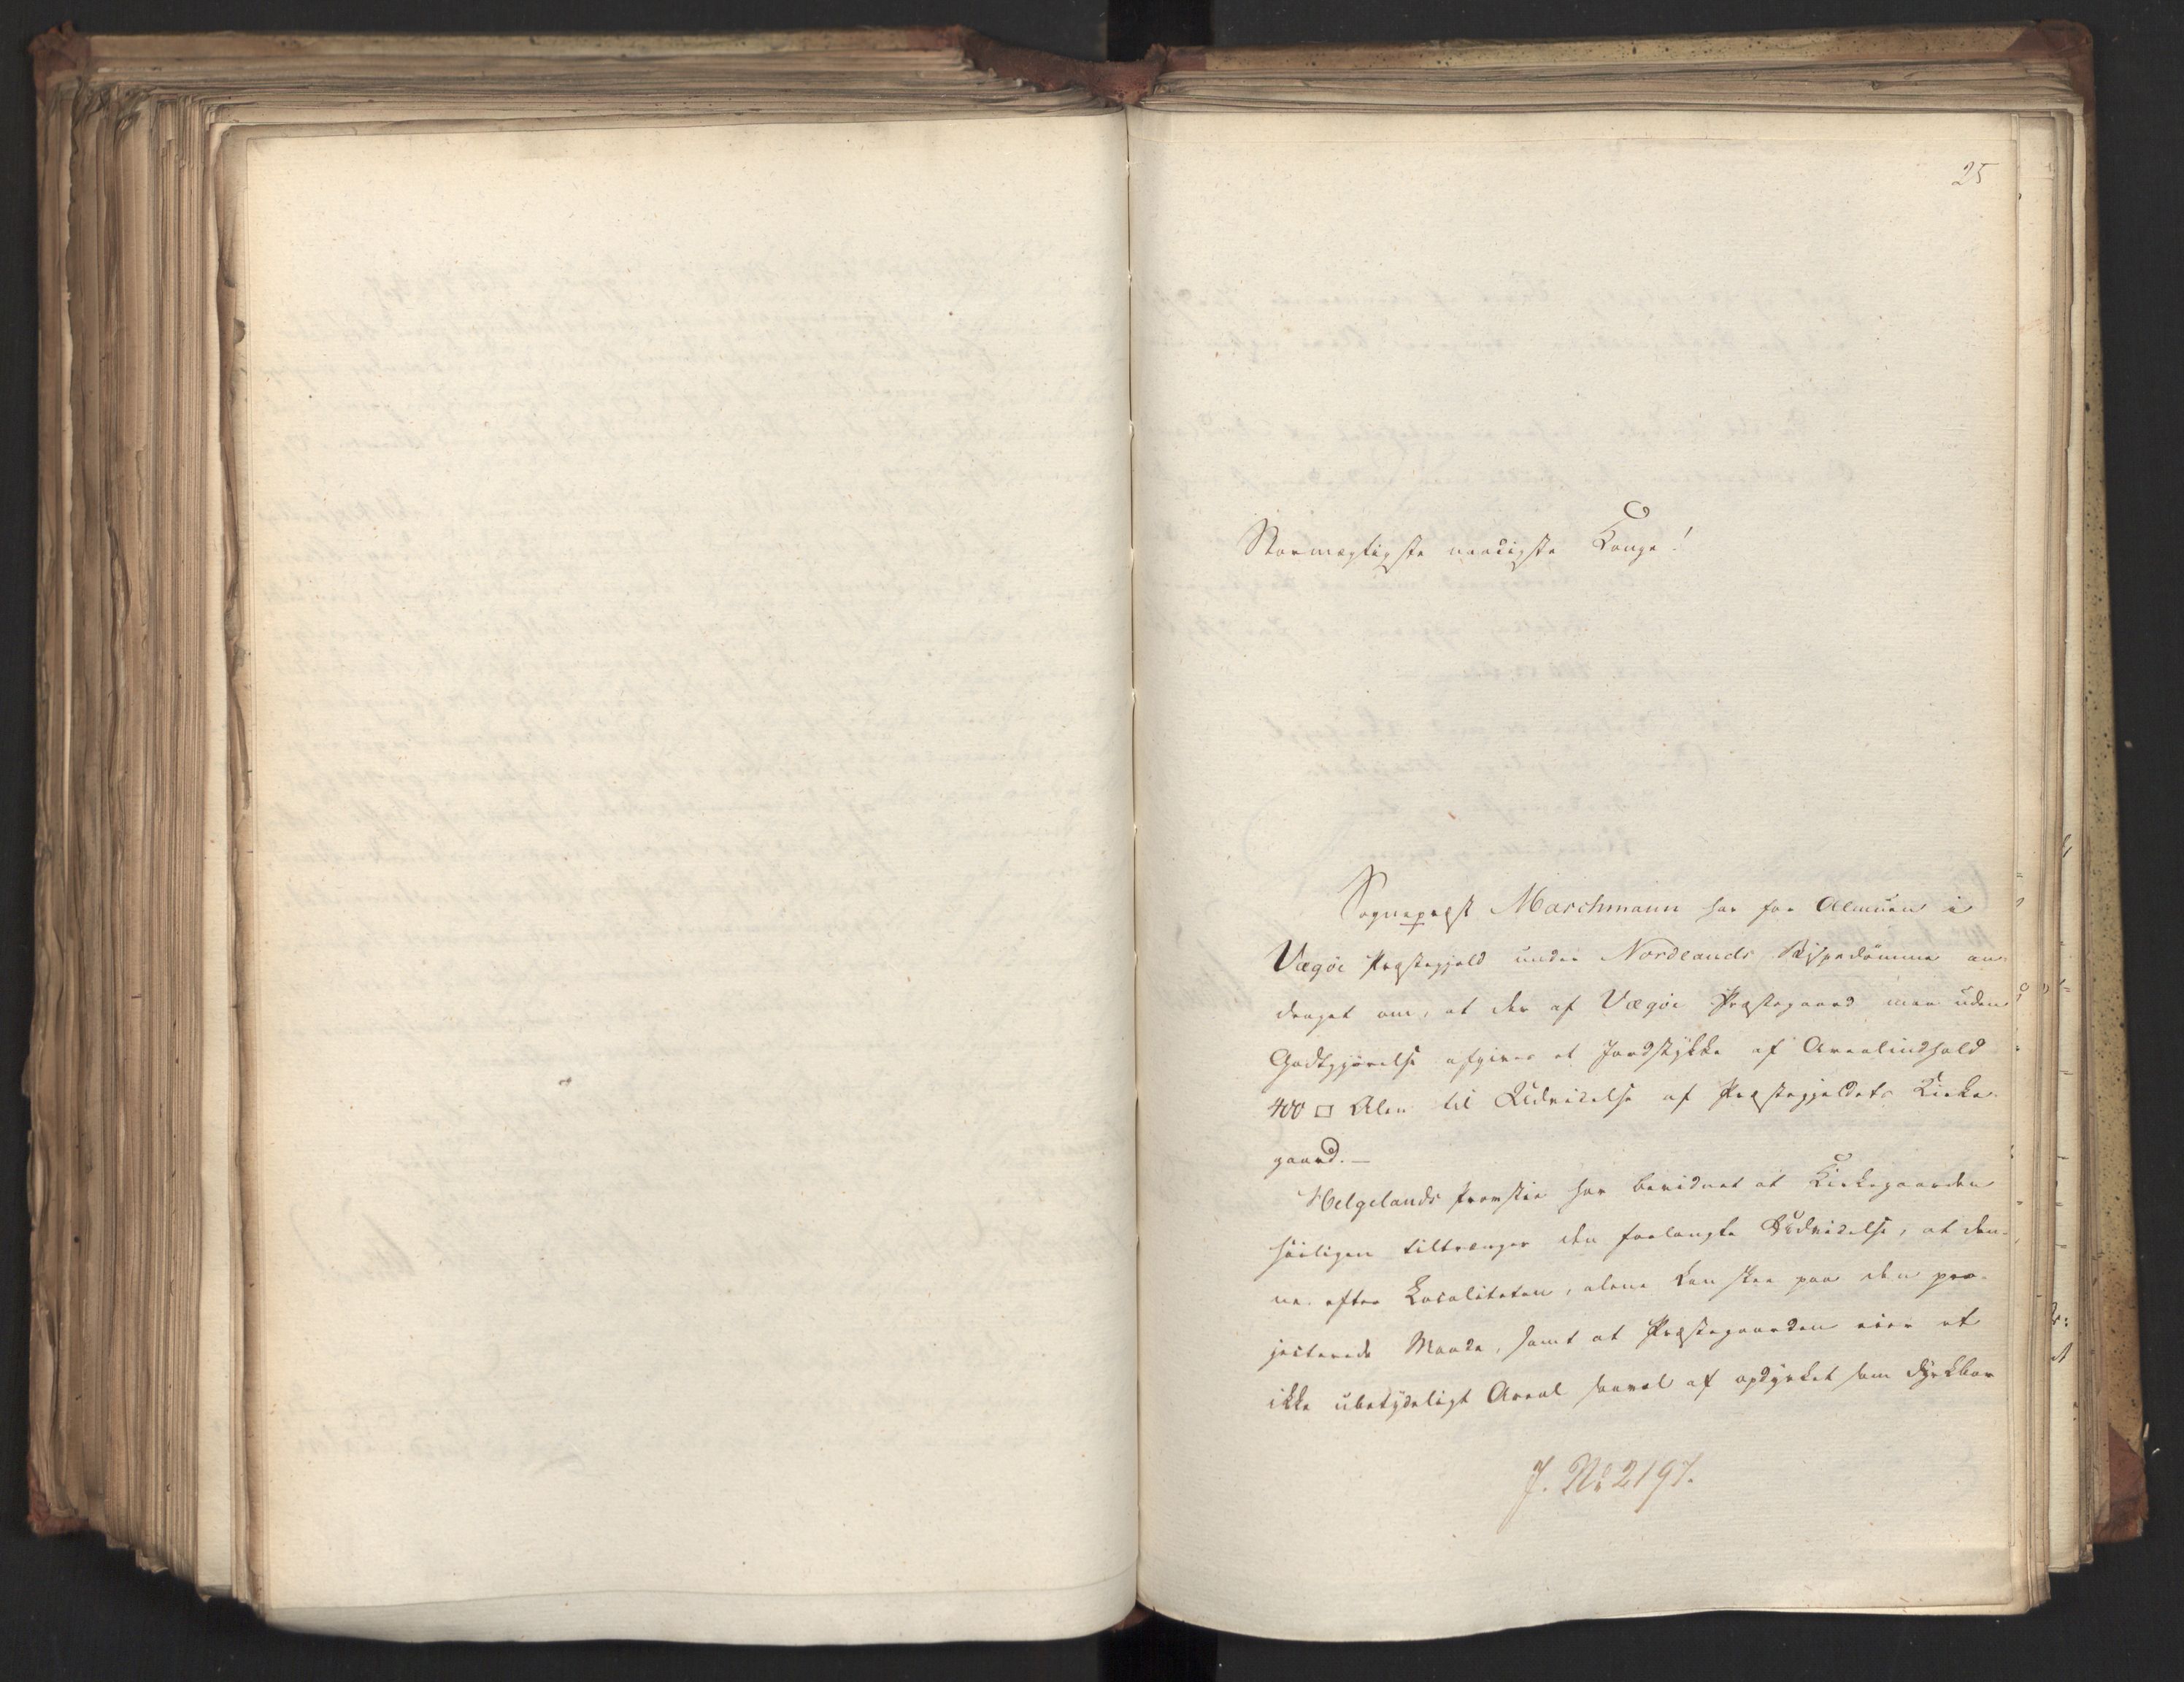 25
Stormægtigste naadigste Konge!
Sognepræst Marchmann har for Almuen i
Vægøe Præstegjeld under Nordlands Bispedømme an-
draget om, at der af Vægøe Præstegaard maa uden
Godtgjørelse afgives et Jordstykke af Arealindhold
400 □ Alen til Udvidelse af Præstegjeldets Kirke-
gaard.—
Helgelands Provstie har bevidnet at Kirkegaarden
høiligen tiltrænger den forlangte Udvidelse, at den-
ne efter Localiteten, alene kan skee paa den pro-
jecterede Maade, samt at Præstegaarden eier et
ikke ubetydeligt Areal saavel af opdyrket som dyrkbar
J. No 2197.